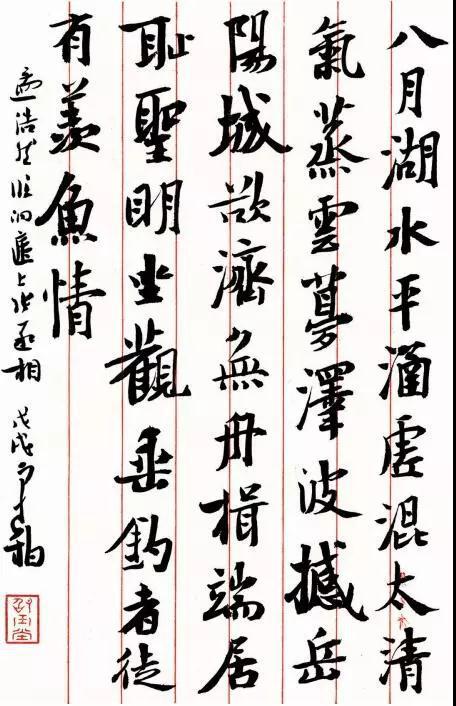 八月湖水平涵虛混太清
氣蒸雲夢澤波撼岳
陽城欲濟無舟楫端居
耻聖明坐觀垂釣者徒
有羨魚情
孟浩然臨洞庭上張丞相 戊戌